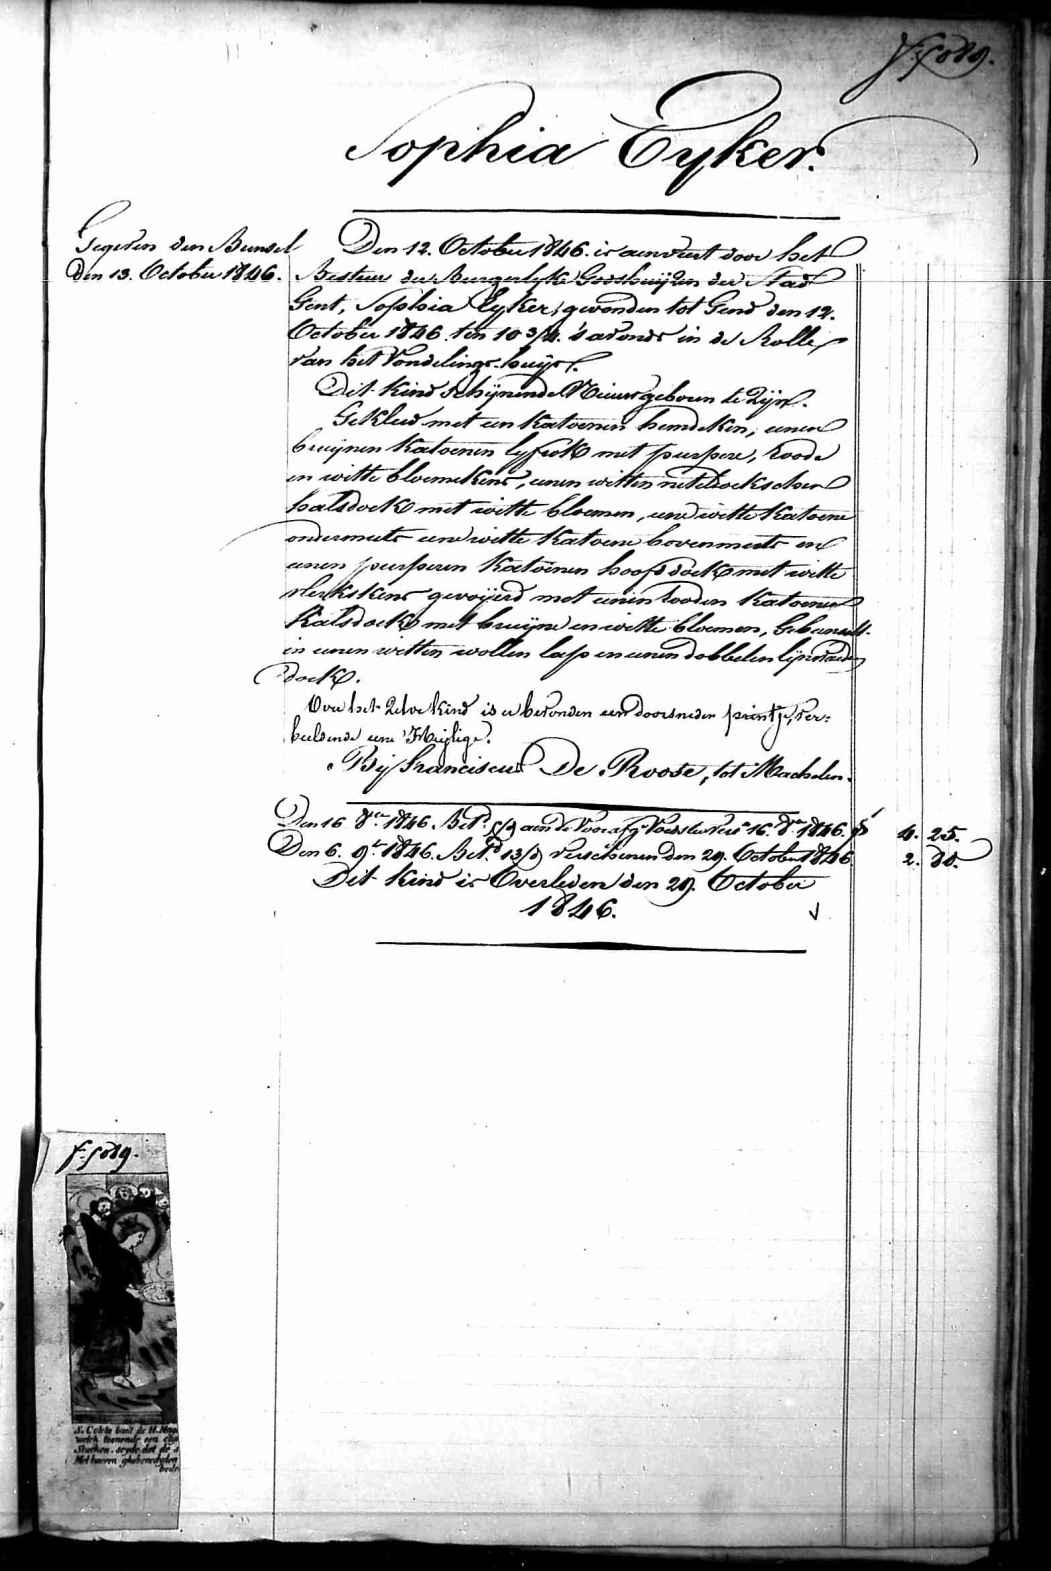 f: 5089.
Sophia Eyker.
Gegeven den Bunsel
den 13. October 1846.
Den 12. October 1846. is aenveert door het
Bestuur der Burgerlyke Godshuijzen der Stad
Gent, Sophia Eyker, gevonden tot Gend den 12.
October 1846. ten 10 3/4. 's avonds in de Rolle
van het Vondelings-huijs.
Dit kind schijnende Nieuwgeboren te Zijn.
Gekleed met een katoenen hemdeken, eenen
bruijnen katoenen lyfrok met purpere, roode
en witte bloemekens, eenen witten neteldoekschen
halsdoek met witte bloemen, eene witte katoene
ondermuts eene witte katoene bovenmuts en
eenen purperen katoenen hoofddoek met witte
vlerkskens gevoijerd met eenen rooden katoenen
halsdoek met bruijne en witte bloemen, Gebunselt
in eenen witten wollen lap en eenen dobbelen lijnwaeden
doek.
Over het Zelve kind is er bevonden een doorsneden printje, ver-
beeldende eene Heijlige.
Bij Franciscus De Roose, tot Machelen.
Den 16 8er 1846. Betd. aen de Voorafg. Voedster vers. 16. 8er 1846. 4. 25.
Den 6. 9r 1846. Betd. 13/d verschenen den 29. October 1846 2. 80.
Dit kind is Overleden den 29. October
1846.
f: 5089.
S. Coleta bant de H. Mag
welck toonende een
Stucken. seyde dat de s
Met haeren ghebenedyden